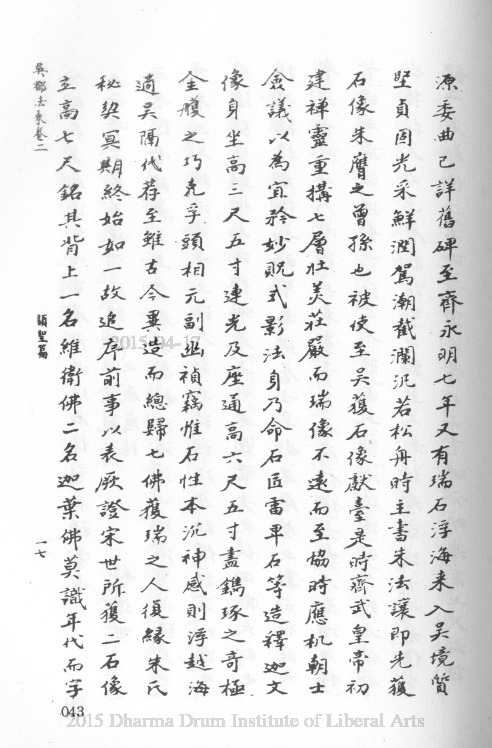 源委曲已詳舊碑至齊永明七年又有瑞石浮海來入吳境質
堅貞固光采鮮潤駕潮截瀾汎若松舟時主書朱法讓即先獲
石像朱膺之曾孫也被使至吳獲石像獻臺是時齊武皇帝初
建禪靈重搆七層壯美莊嚴而瑞像不遠而至協時應机朝士
僉議以為宜矜妙貺式影法身乃命石匠雷卑石等造釋迦文
像身坐高三尺五寸連光及座通高六尺五寸盡鐫琢之奇極
金艧之巧克孚頭相元副幽禎竊惟石性本沉神感則浮越海
適吳隔代荐至雖古今異造而總歸七佛獲瑞之人復緣朱氏
秘契冥期終始如一故追序前事以表厥證宋世所獲二石像
立高七尺銘其背上一名維衛佛二名迦葉佛莫識年代而字
吳都法乘卷二
顯聖篇
一七
043
2015-04-17
2015 Dharma Drum Institute of Liberal Arts